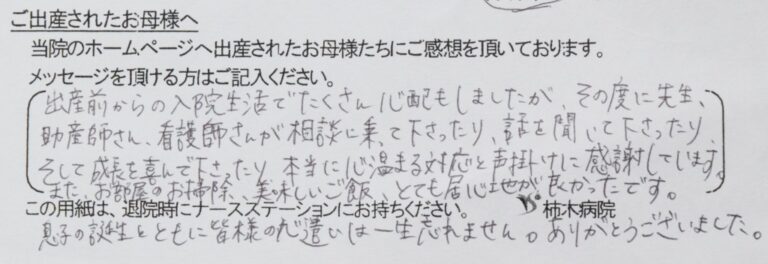 ご出産されたお母様へ
当院のホームページへ出産されたお母様たちにご感想を頂いております。
メッセージを頂ける方はご記入ください。
出産前からの入院生活でたくさん心配もしましたが、その度に先生、
助産師さん、看護師さんが相談に乗って下さったり、話を聞いて下さったり、
そして成長を喜んで下さったり、本当に心温まる対応と声掛けに感謝しています。
また、お部屋のお掃除、美味しいご飯、とても居心地が良かったです。
この用紙は、退院時にナースステーションにお持ちください。 柿木病院
息子の誕生とともに皆様のお心遣いは一生忘れません。ありがとうございました。